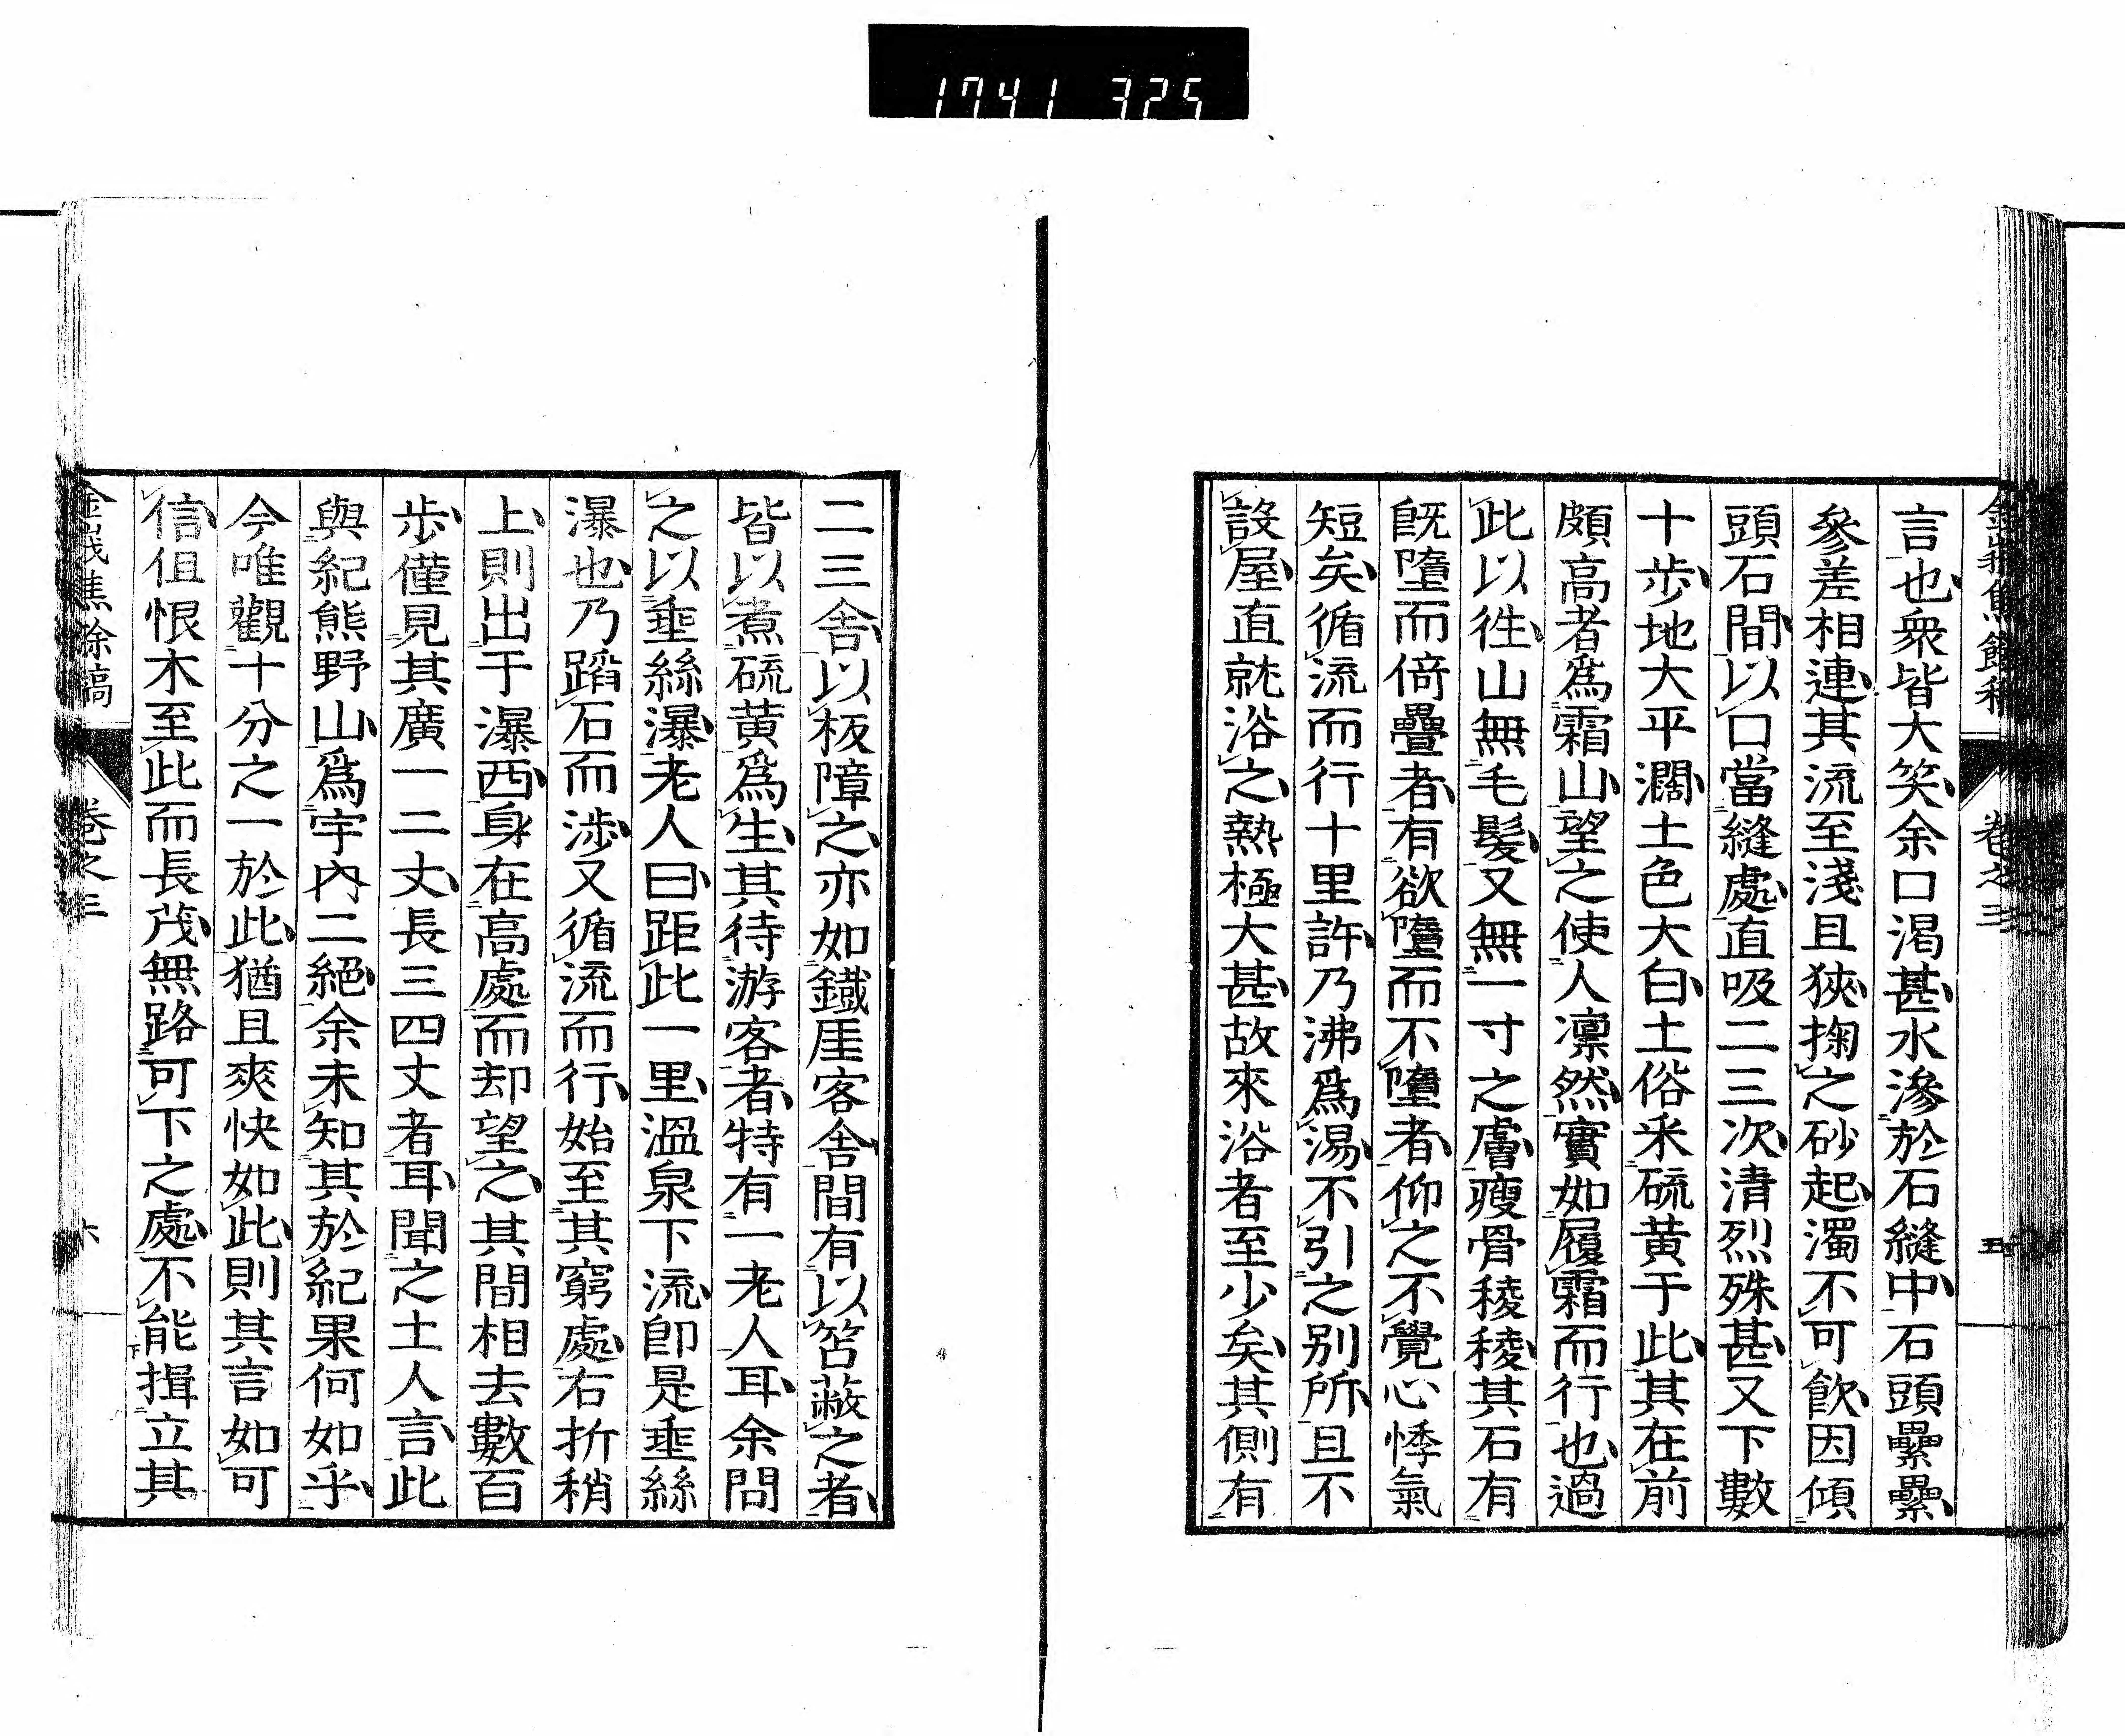 1741 325
言也衆皆大笑余口渴甚水滲於石縫中石頭纍纍
參差相連其流至淺且狹掬之砂起濁不可飲因傾
頭石間以口當縫處直吸二三次清烈殊甚又下數
十步地大平濶土色大白土俗采硫黃于此其在前
頗高者爲霜山望之使人凛然實如履霜而行也過
此以徃山無毛髮又無一寸之膚瘦骨稜稜其石有
既墮而倚疊者有欲墮而不墮者仰之不覺心悸氣
短矣循流而行十里許乃沸爲湯不引之別所且不
設屋直就浴之熱極大甚故來浴者至少矣其側有
卷之三
五
二三舍以板障之亦如鐵厓客舍間有以笘蔽之者
皆以煮硫黃爲生其待游客者特有一老人耳余問
之以埀絲瀑老人曰距此一里溫泉下流卽是埀絲
瀑也乃蹈石而涉又循流而行始至其窮處右折稍
上則出于瀑西身在高處而却望之其間相去數百
步僅見其廣一二丈長三四丈者耳聞之土人言此
與紀熊野山爲宇內二絕余未知其於紀果何如乎
今唯觀十分之一於此猶且爽快如此則其言如可
信伹恨木至此而長茂無路可下之處不能揖立其
金峩樵餘稿
卷之三
六